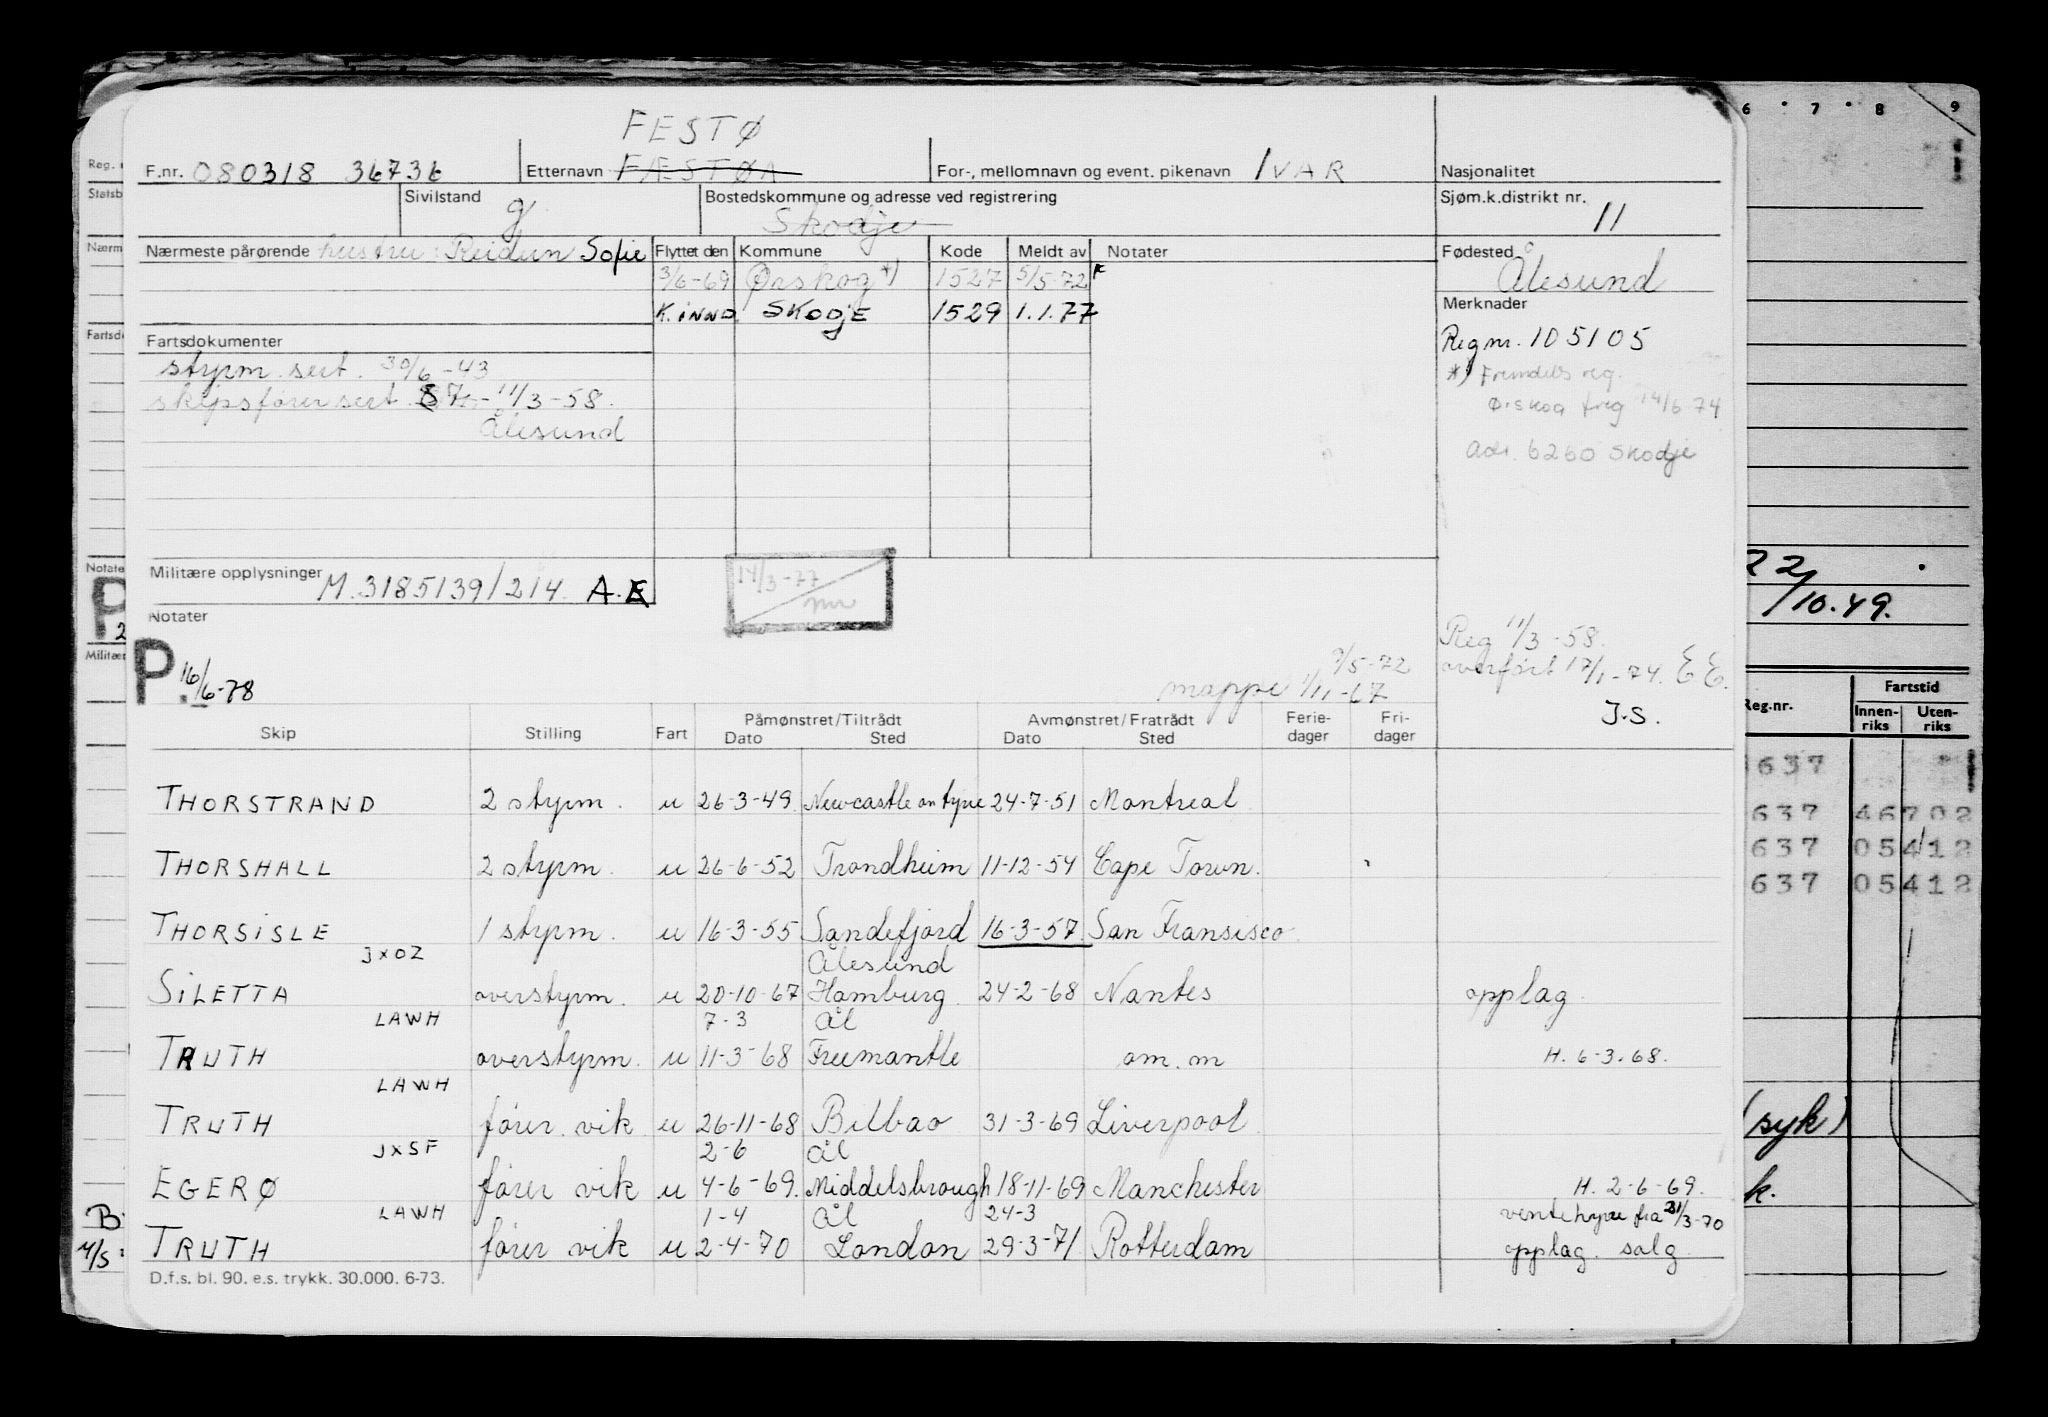 FESTØ
F.nr. 080318 36736
Etternavn FÆSTØA
For-, mellomnavn og event. pikenavn IVAR
Nasjonalitet
Sivilstand g
Bostedskommune og adresse ved registrering
Skodje
Sjøm.k.distrikt nr. 11
Nærmeste pårørende hustru Reidun Sofie
Flyttet den Kommune Kode Meldt av Notater
3/6-69 Ørskog *) 1527 5/5-72
K.innd. SKODJE 1529 1.1.77
Fødested
Ålesund
Merknader
Regnr. 105105
*) Fremdels reg.
Ørskog freg 14/6 74
Adr. 6260 Skodje
Fartsdokumenter
styrm. sert. 30/6-43
skipsfører sert. 11/3-58.
Ålesund
Militære opplysninger M.3185139/214. A.E
14/3-77
Notater
P. 16/6-78
mappe 1/11-67
/5-72
Reg 11/3-58.
overført 17/1-74. EE.
J.S.
Skip Stilling Fart Påmønstret/Tiltrådt Dato Sted Avmønstret/Fratrådt Dato Sted Ferie-dager Fri-dager
THORSTRAND 2 styrm. u 26-3-49. Newcastle on tyne 24-7-51 Montreal
THORSHALL 2 styrm. u 26-6-52 Trondheim 11-12-54 Cape Town.
THORSISLE 1 styrm. u 16-3-55 Sandefjord 16-3-57 San Fransisco.
JXOZ Ålesund
SILETTA overstyrm. u 20-10-67 Hamburg. 24-2-68 Nantes opplag.
LAWH 7-3 Ål
TRUTH overstyrm. u 11-3-68 Freemantle om. m H. 6-3.68.
LAWH
TRUTH fører vik u 26-11-68 Bilbao 31-3-69 Liverpool
JXSF 2-6 Ål
EGERØ fører vik u 4-6-69. Middelsbrough 18-11-69 Manchester H. 2-6-69.
LAWH 1-4 Ål 24-3 ventehyre fra 21/3-70
TRUTH fører vik u 2-4-70 London 29-3-71 Rotterdam opplag. salg
D.f.s. bl. 90. e.s. trykk. 30.000. 6-73.
Reg.
Statsb
Nærm
Fartsdo
Notate
P
2
Militær
B
4/5
6 7 8 9
22/10.49.
Reg.nr. Fartstid
Innen-riks Uten-riks
637
637 46702
637 05412
637 05412
(syk)
k.